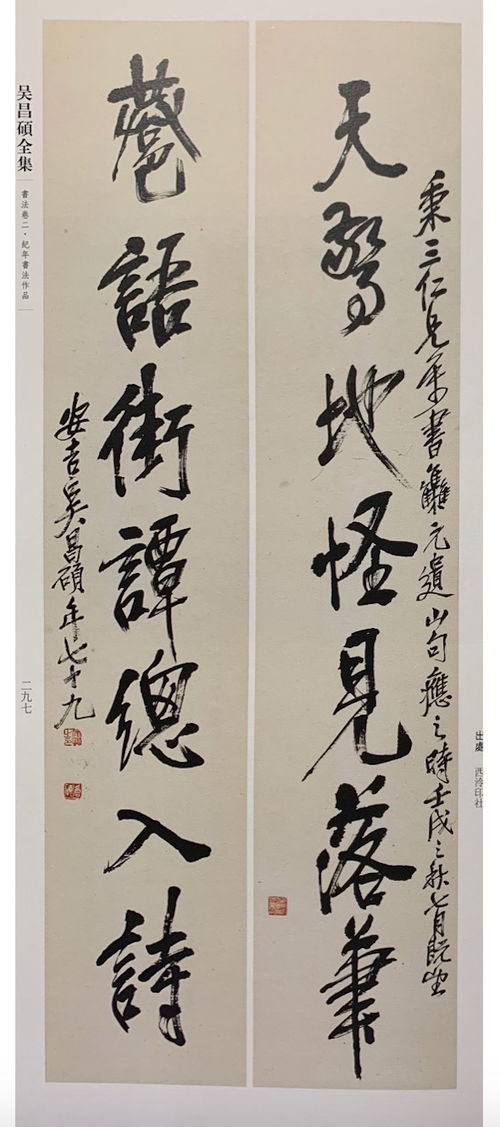 秉三仁兄屬書集元遺山句應之時壬戌之秋七月既望
天驚地怪見落筆
語街譚總入詩
安吉吳昌碩年七十九
吴昌碩全集
書法卷二·紀年書法作品
二九七
出處 西泠印社